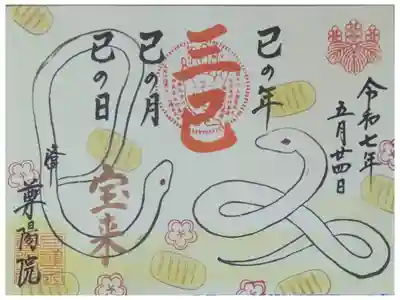 令和七年
五月廿四日
巳の年
三巳
巳の月
巳の日
宝来
尊陽院